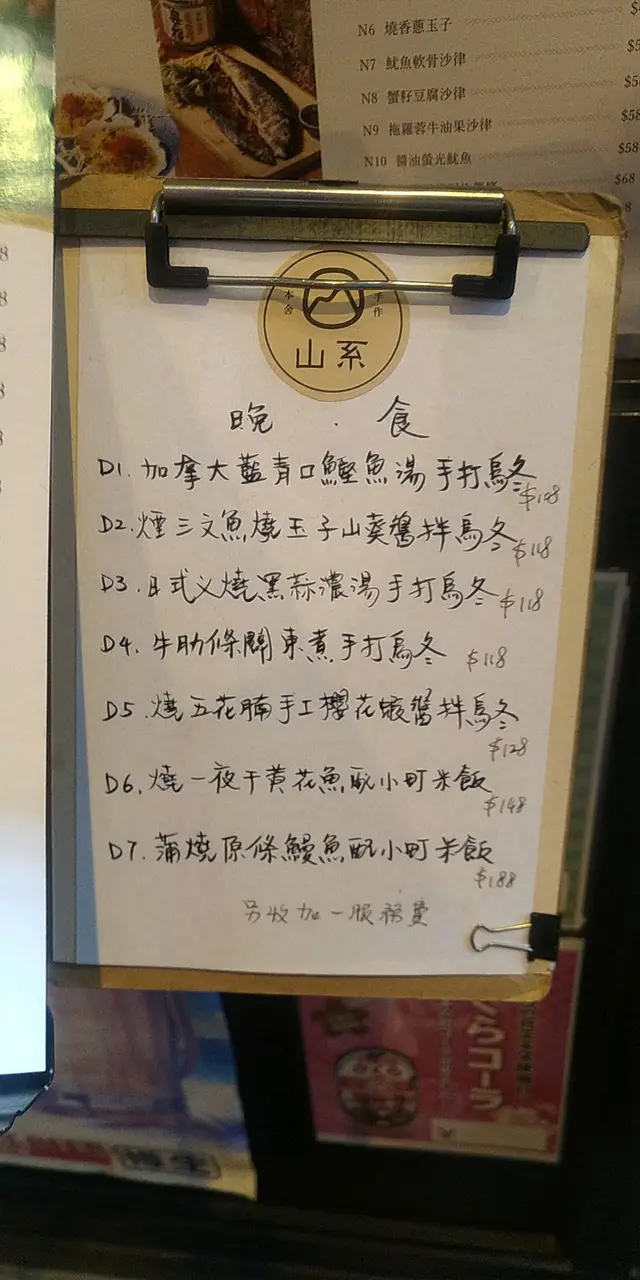 N6 燒香蔥玉子
N7 魷魚軟骨沙律
N8 蟹籽豆腐沙律
N9 拖羅蓉牛油果沙律 $58
N10 醬油螢光魷魚 $58
$68
本舍 手作
山系
晚 · 食
D1. 加拿大藍青口鰹魚湯手打烏冬 $108
D2. 煙三文魚燒玉子山葵醬拌烏冬 $118
D3. 日式义燒黑蒜濃湯手打烏冬 $118
D4. 牛肋條關東煮手打烏冬 $118
D5. 燒五花腩手工櫻花蝦醬拌烏冬 $128
D6. 燒一夜干黃花魚配小町米飯 $148
D7. 蒲燒原條鰻魚配小町米飯 $188
另收加一服務費
くらコーラ